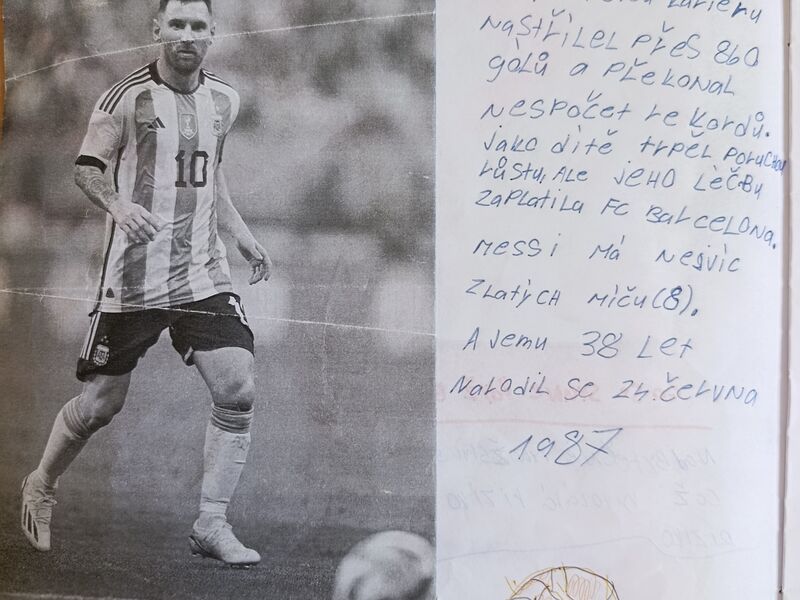 kariéru
nastřílel přes 860
gólů a překonal
nespočet rekordů.
jako dítě trpěl poruchou
růstu, ale jeho léčbu
zaplatila FC Barcelona.
messi má nejvíc
zlatých míčů(8).
A jemu 38 let
Narodil se 24.června
1987
10